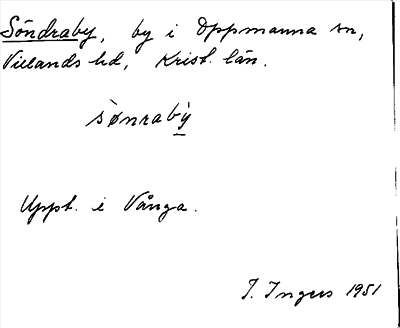 Söndraby, by i Oppmanna sn,
Villands hd, Krist. län.
sø̀nrabý
Uppt. i Vånga.
I. Ingers 1951